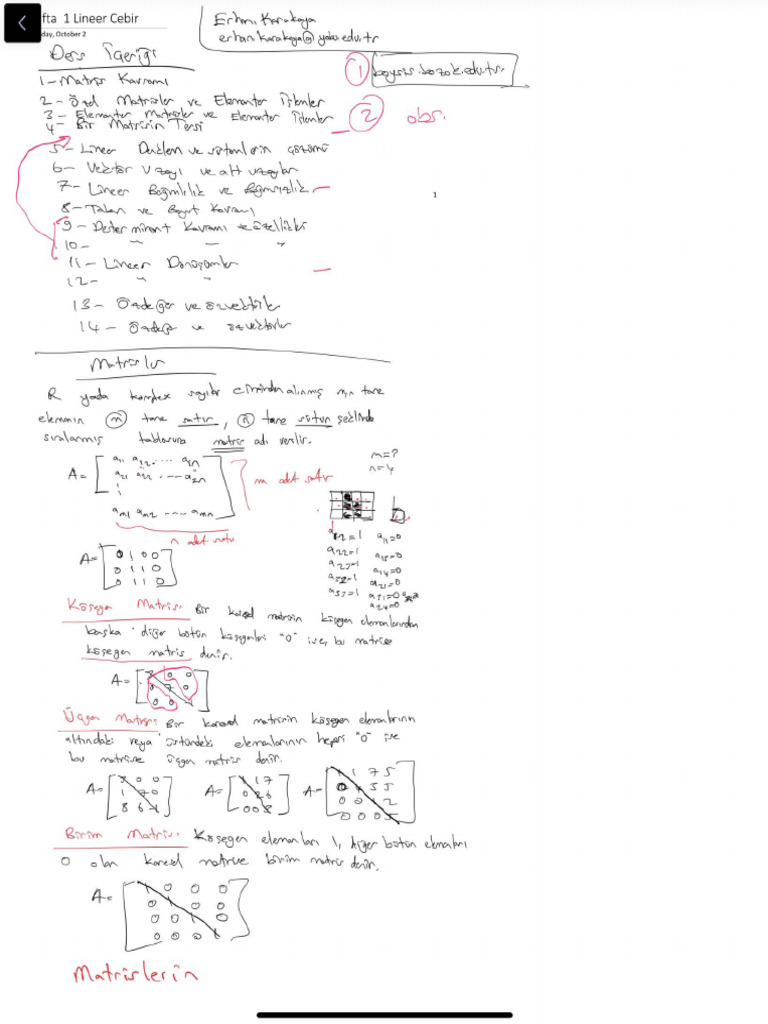 fta 1 Lineer Cebir
day, October 2
Erhan Karakaya
Ders İçeriği
1 boysis.bozok.edu.tr.
1- Matris Kavramı
2- Özel Matrisler ve Elemanter İşlemler
3- Elemanter Matrisler ve Elemanter İşlemler
2 obs.
4- Bir Matrisin Tersi
5- Lineer Denklem ve sistemlerin çözümü
6- Vektör Uzayı ve alt uzaylar
7- Lineer Bağımlılık ve Bağımsızlık
1
8- Taban ve Boyut Kavramı
9- Determinant Kavramı ve özellikleri
10- " " "
11- Lineer Dönüşümler
12- " "
13- Özdeğer ve özvektörler
14- Özdeğer ve özvektörler
Matrisler
R yada komplex sayılar cisminden alınmış m.n tane
elemanın m tane satır, n tane sütun şeklinde
sıralanmış tablosuna matris adı verilir.
m=?
n=4
A= a11 a12 .... a1n
a21 a22 ---- a2n
am1 am2 ---- amn
m adet satır
n adet sütu
A= 0 1 0 0
0 1 1 0
0 1 1 0
a12=1 a11=0
a22=1
a14=0
a24=0
Köşegen Matris: Bir karesel matrisin köşegen elemanlarından
başka diğer bütün köşegenleri "0" ise, bu matrise
köşegen matris denir.
A=
Üçgen Matris: Bir karesel matrisin köşegen elemanlarının
altındaki veya üstündeki elemanlarının hepsi "0" ise
bu matrise üçgen matris denir.
A= 3 0 0 A= 1 1 7 A= 1 1 7 5
1 7 0
0 0 0 5
Birim Matris: Köşegen elemanları 1, diğer bütün elemanları
0 olan karesel matrise birim matris denir.
A= 1 0 0 0
0 1 0 0
0 0 1 0
0 0 0 1
Matrislerin